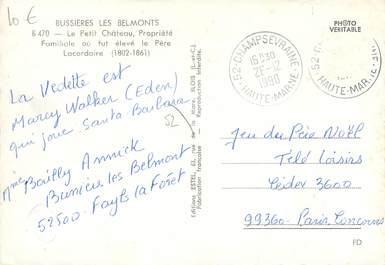 10 €
BUSSIERES LES BELMONTS
6 470 - Le Petit Château, Propriété
Familiale où fut élevé le Père
Lacordaire (1802-1861)
PHOTO
VERITABLE
52-CHAMPSEVRAINE
16 H 30
21-12
1990
HAUTE-MARNE
52-C
HAUTE-MARNE
La Vedette est
Marcy Walker (Eden)
qui joue Santa Barbara
52
Mme Bailly Annick
Bussières les Belmont
52500 Fayl la Forêt
Editions ESTEL, 61, rue BLOIS (L.-et-C.)
Fabrication française - Reproduction interdite.
Jeu du Père Noël
Télé Loisirs
Cédex 3600
99360 - Paris Concours
FD